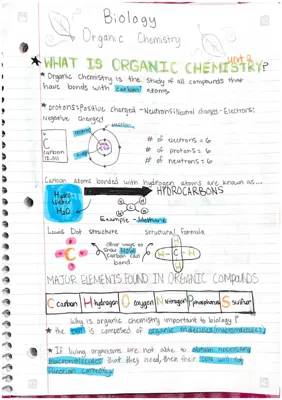 Biology
Organic Chemistry
Unit 2
WHAT IS ORGANIC CHEMISTRY?
Organic Chemistry is the study of all compounds that
have bonds with carbon atoms.
protons: Positive charged - Neutrons: Neutral charged - Electrons:
Negative charged
6
C
carbon
12.011
# of electrons = 6
# of protons = 6
# of neutrons = 6
Carbon atoms bonded with hydrogen atoms are known as...
HYDROCARBONS
Water
H2O
Example - Methane
Lewis Dot structure
Structural formula
Other ways to
show how
Carbon can
bond.
C
H-C-H
MAJOR ELEMENTS FOUND IN ORGANIC COMPOUNDS
Carbon Hydrogen Oxygen Nitrogen Phosphorus Sulfur
Why is organic chemistry important to biology?
the cell is composed of organic molecules (macromolecules)
If living organisms are not able to obtain necessary
macromolecules that they need, then their cells will not
function correctly